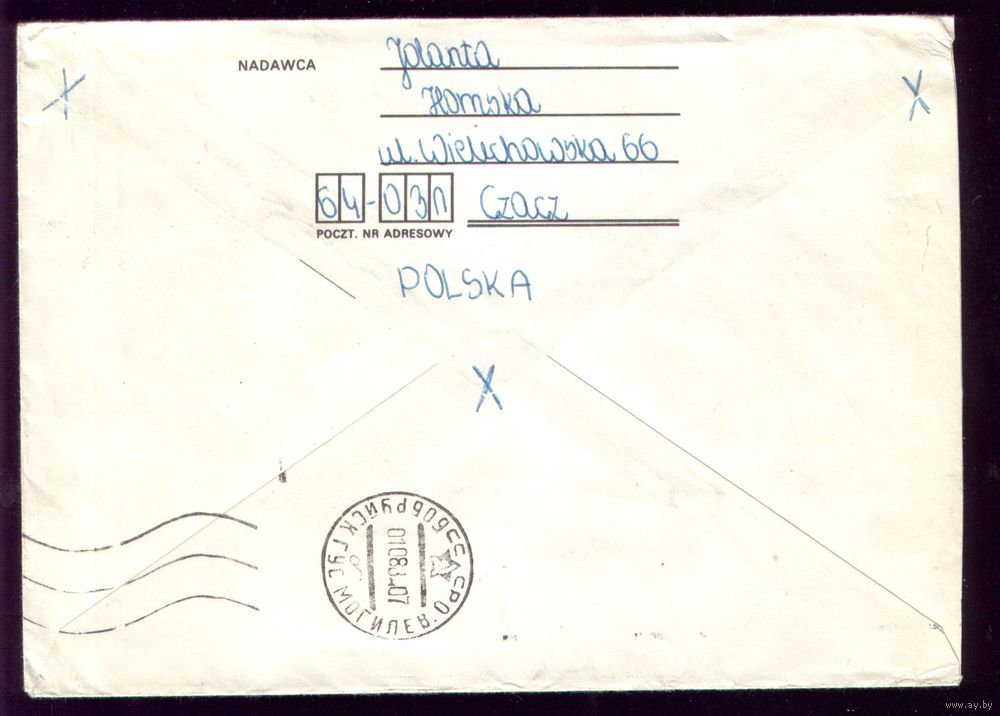 NADAWCA
Jolanta
Homska
ul. Wielichowska 66
64-031 Czacz
POCZT. NR ADRESOWY
POLSKA
X X
X
БОБРУЙСК ГУС МОГИЛЕВ. О
СССР
01083-07
www.ay.by